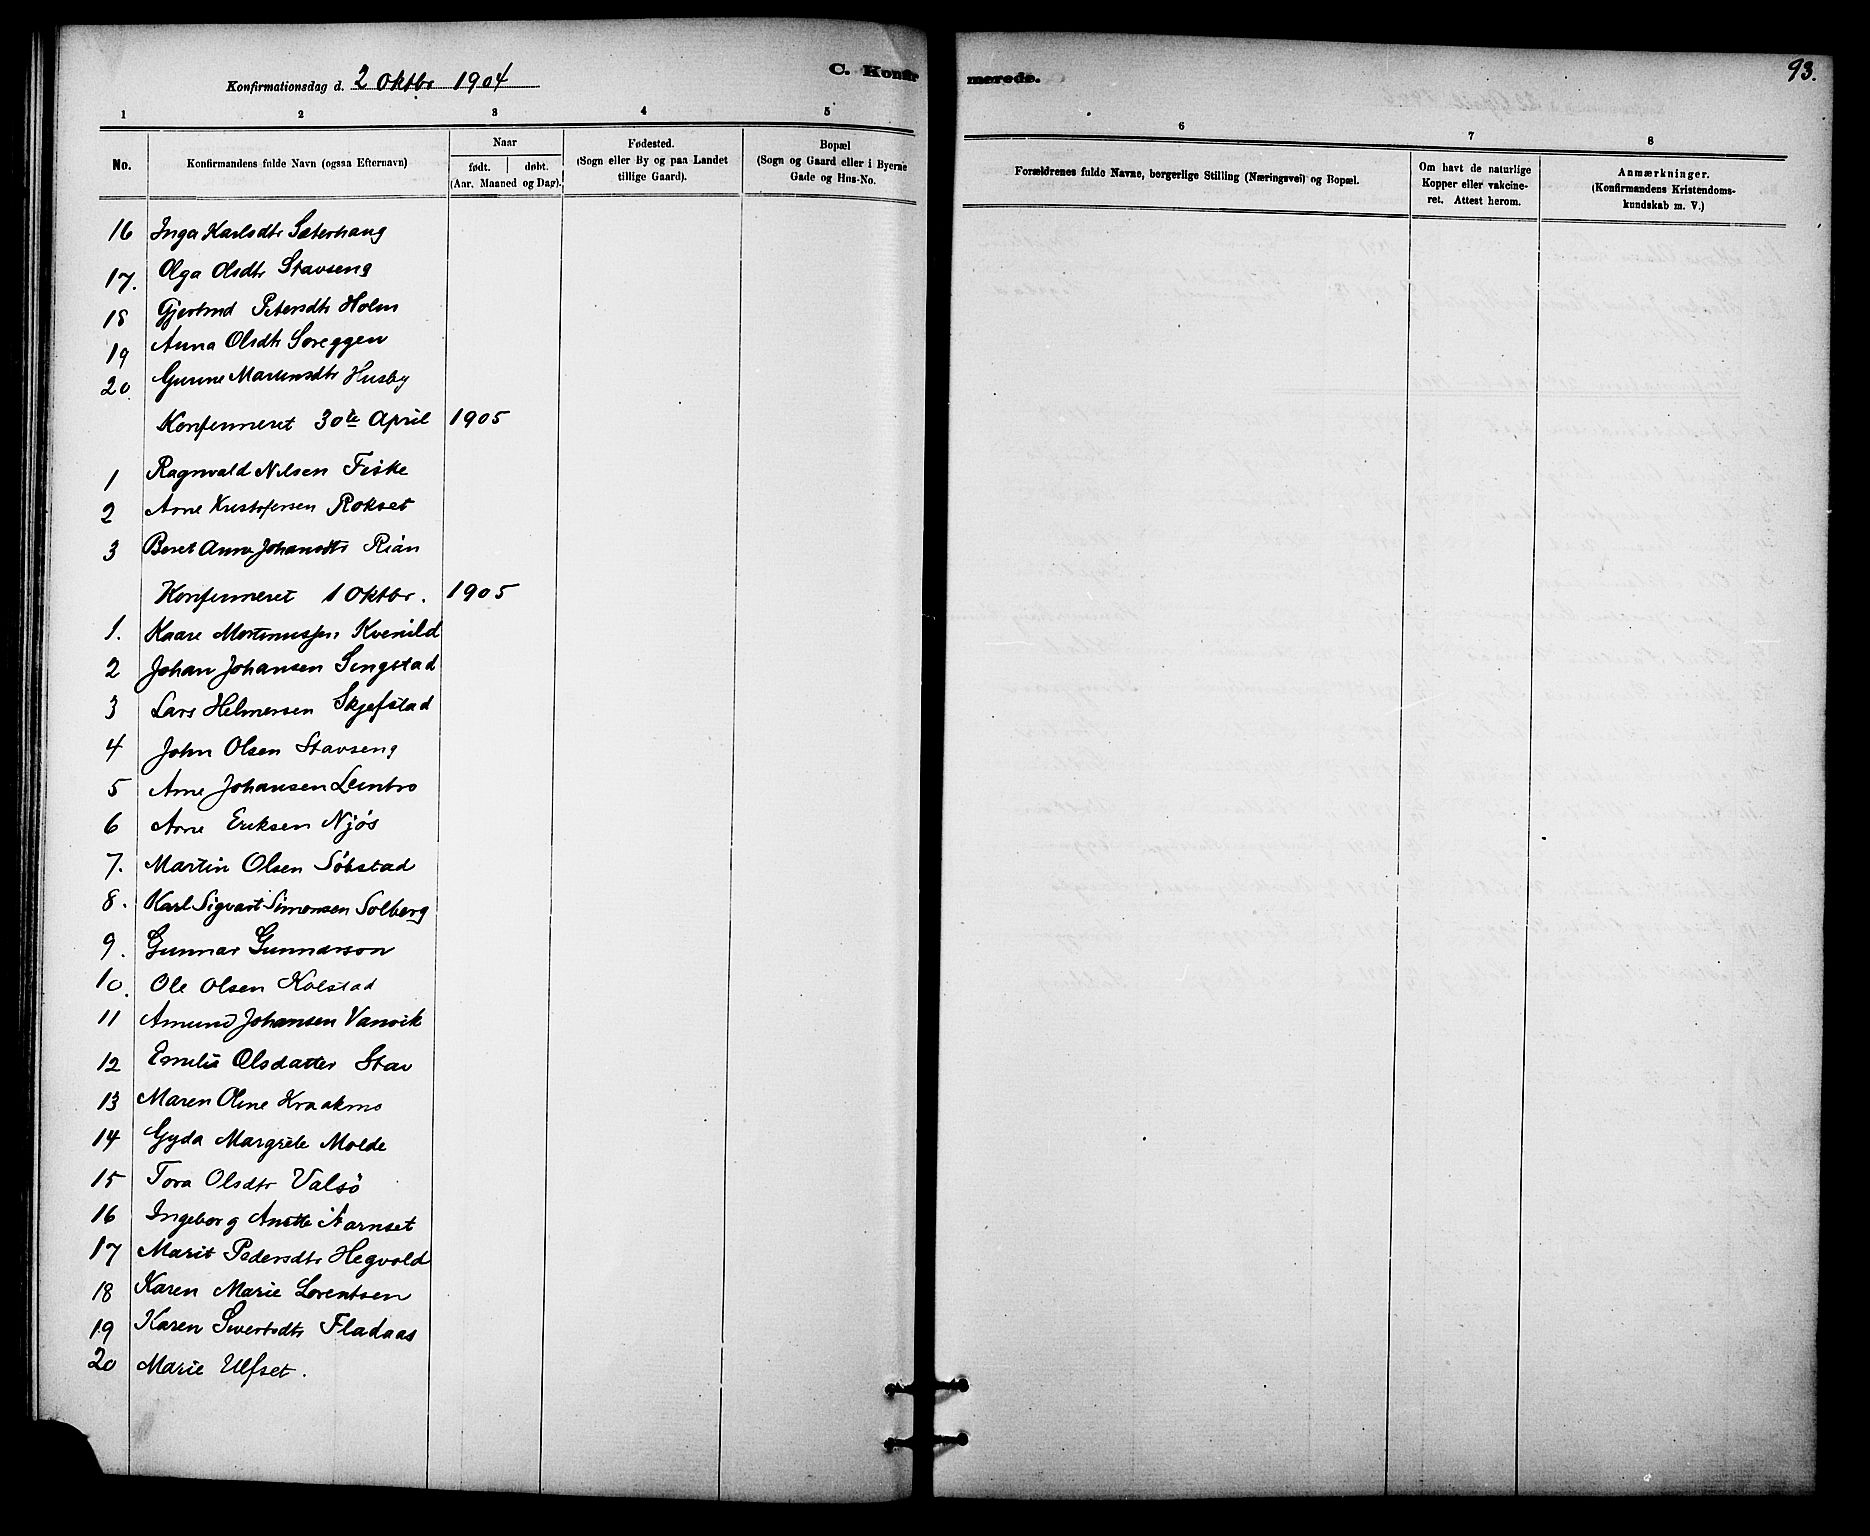 Konfirmationsdag d. 2 Oktbr 1904
C. Konfir
merede.
93.
1 2 3 4 5 6 7 8
No.
Konfirmandens fulde Navn (ogsaa Efternavn)
Naar
født. døbt.
(Aar, Maaned og Dag).
Fødested.
(Sogn eller By og paa Landet
tillige Gaard).
Bopæl
(Sogn og Gaard eller i Byerne
Gade og Hus-No.
Forældrenes fulde Navne, borgerlige Stilling (Næringsvei) og Bopæl.
Om havt de naturlige
Kopper eller vakcine-
ret. Attest herom.
Anmærkninger.
(Konfirmandens Kristendoms-
kundskab m. V.)
16 Inga Karlsdtr Sæterhaug
17. Olga Olsdtr Stavseng
18 Gjertrud Petersdtr Holm
19 Anna Olsdtr Soreggen
20 Gurine Martinsdtr Husby
Konfirmeret 30te April 1905
1 Ragnvald Nilsen Fiske
2 Arne Kristofersen Rokset
3 Beret Anna Johansdtr Rian
Konfirmeret 1 Oktbr. 1905
1. Kaare Mortinussen Kvenild
2 Johan Johansen Singstad
3 Lars Helmersen Skjefstad
4 John Olsen Stavseng
5 Arne Johansen Leinbro
6 Arne Eriksen Njøs
7. Martin Olsen Søbstad
8. Karl Sigvart Simonsen Solberg
9. Gunnar Gunnarson
10. Ole Olsen Kolstad
11 Amund Johansen Vanvik
12 Emilie Olsdatter Stav
13 Maren Oline Kraakmo
14 Gyda Margrete Molde
15 Tora Olsdtr Valsö
16 Ingeborg Anette Kornset
17 Marit Pedersdtr Hegvold
18 Karen Marie Lorentsen
19 Karen Sivertsdtr Fladaas
20 Marie Ulfset.